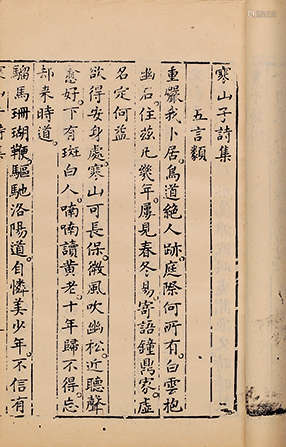 寒山子詩集
五言類
重巖我卜居鳥道絕人跡庭際何所有白雲抱
幽石住茲凡幾年屢見春冬易寄語鐘鼎家虛
名定何益
欲得安身處寒山可長保微風吹幽松近聽聲
愈好下有斑白人喃喃讀黃老十年歸不得忘
却来時道
騮馬珊瑚鞭驅馳洛陽道自憐美少年不信有